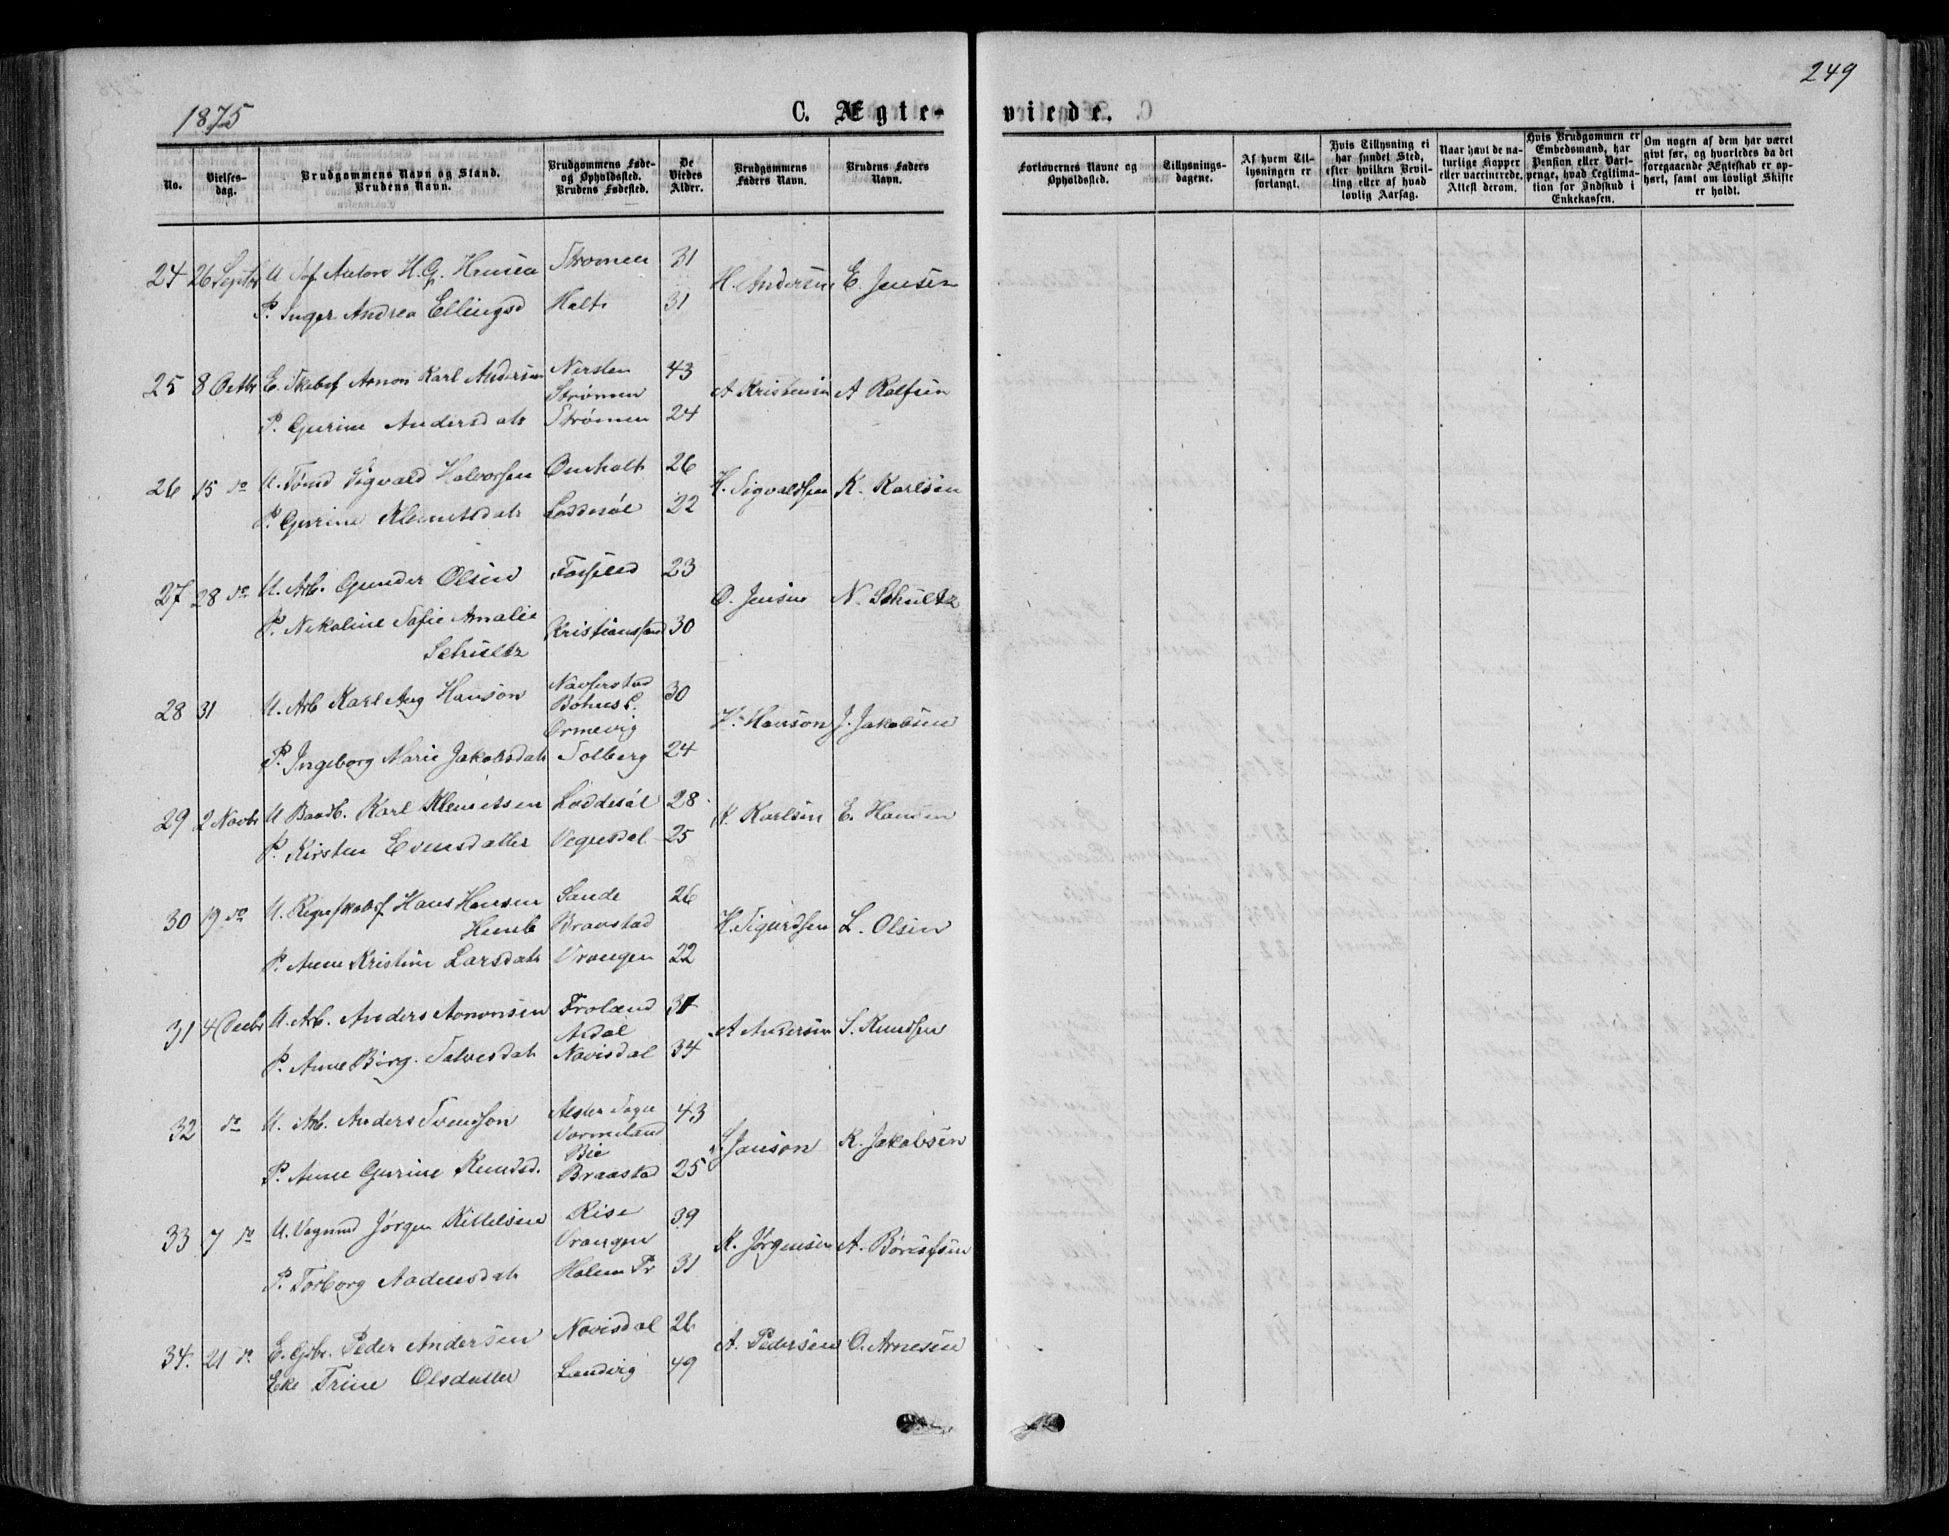 249
1875
C. Ægte-
viede.
No.
Vielses-
dag.
Brudgommens Navn og Stand.
Brudens Navn.
Brudgommens Føde-
og Opholdssted.
Brudens Fødested.
De
Viedes
Alder.
Brudgommens
Faders Navn.
Brudens Faders
Navn.
Forlovernes Navne og
Opholdssted.
Tillysnings-
dagene.
Af hvem Til-
lysningen er
forlangt.
Hvis Tillysning ei
har fundet Sted,
efter hvilken Bevil-
ling eller af hvad
lovlig Aarsag.
Naar havt de na-
turlige Kopper
eller vaccinerede.
Attest derom.
Hvis Brudgommen er
Embedsmand, har
Pension eller Vart-
penge, hvad Legitima-
tion for Indskud i
Enkekassen.
Om nogen af dem har været
givt før, og hvorledes da det
foregaaende Ægteskab er op-
hørt, samt om lovligt Skifte
er holdt.
24 26 Septbr U. Søf Anton H.G. Hansen Strømen 31 H. Andersen E. Jensen
P. Inger Andrea Ellingsd Holt 31
25 8 Octbr E. Skibsf Aanon Karl Andersen Nersten 43 A Kristensen A Rolfsen
Strømen
P. Gurine Andersdatr Strømen 24
26 15 do U. Tømd Sigvald Halvorsen Omholt 26 H. Sigvaldsen K. Karlsen
P. Gurine Klemetsdatr Loddesøl 22
27 28 do U. Arb. Gunder Olsen 23 O. Jensen N. Schultz
P. Nikoline Sofie Amalie Kristianssand 30
Schultz
28 31 U. Arb Karl Aug Hanson Naverstad 30 H. Hanson J. Jakobsen
Bohus L.
Ormevig
P. Ingeborg Marie Jakobsdatr Solberg 24
29 2 Novbr U Baadb. Karl Klemetsen Loddesøl 28 K. Karlsen E. Hansen
P. Kirsten Evensdatter Vegusdal 25
30 19 do U. Regnskabsf Hans Hansen Sande 26 H. Sigurdsen L. Olsen
Braastad
P. Anne Kristine Larsdatr Vrangen 22
31 4 Decbr U. Arb. Anders Aanonsen Froland A Andersen S. Knudsen
P. Anne Birg. Salvesdatr Navisdal 34
32 do U. Arb. Anders Svendson 43 Janson K. Jakobsen
Vermeland
Bie
P. Anne Gurine Knudsd. Braastad 25
33 7 do U. Vognmd Jørgen Kittelsen Rise 39 K. Jørgensen A. Børresen
Vrangen
P. Torborg Aadnesdatr 31
34. 21 do E. Gbr. Peder Andersen Navisdal 26 A. Pedersen O. Arnesen
Eke Trine Olsdatter Landvig 49